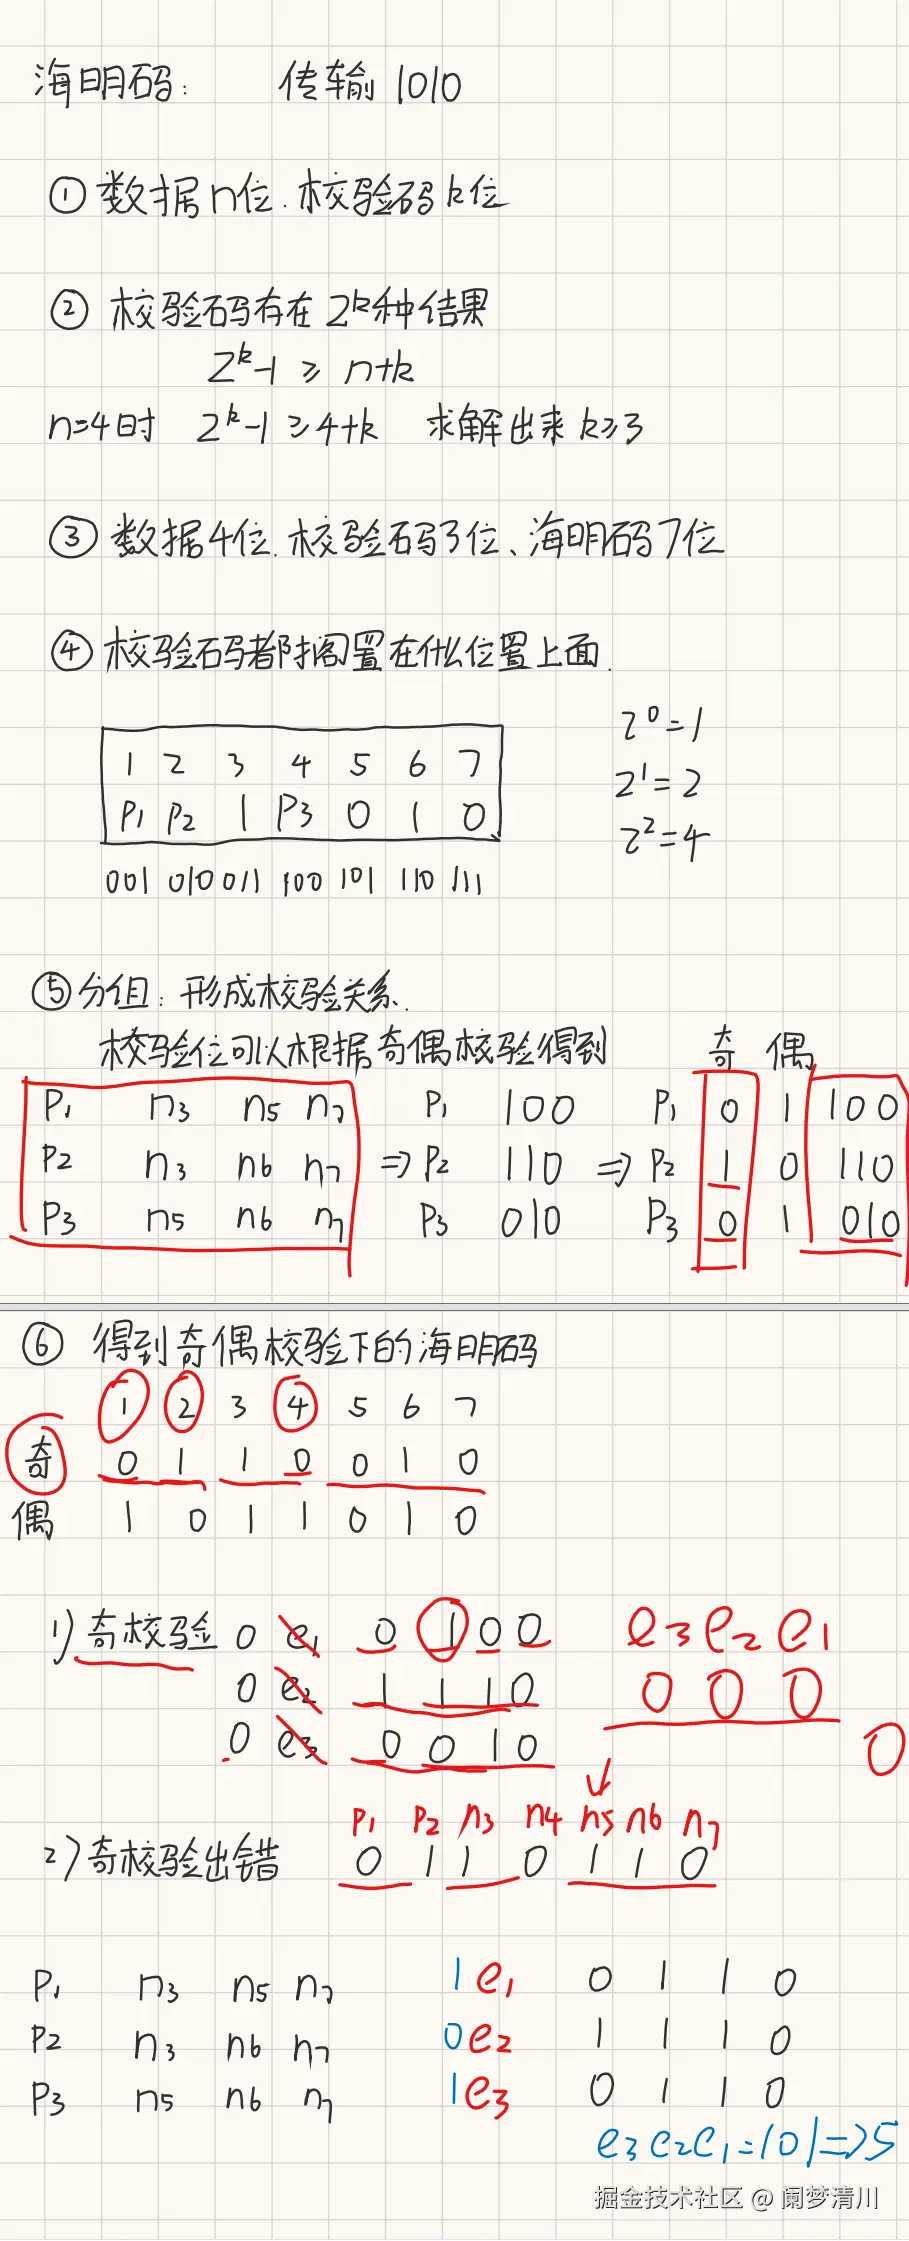 海明码: 传输 1010
① 数据n位.校验码k位
② 校验码存在 2^k种结果
2^k-1 ≥ n+k
n=4时 2^k-1≥4+k 求解出来k≥3
③ 数据4位.校验码3位、海明码7位
④ 校验码都搁置在什么位置上面.
2^0=1
1 2 3 4 5 6 7
2^1=2
P1 P2 1 P3 0 1 0
2^2=4
001 010 011 100 101 110 111
⑤ 分组: 形成校验关系.
校验位可以根据奇偶校验得到 奇 偶
P1 n3 n5 n7 P1 100 P1 0 1 100
P2 n3 n6 n7 => P2 110 => P2 1 0 110
P3 n5 n6 n7 P3 010 P3 0 1 010
⑥ 得到奇偶校验下的海明码
1 2 3 4 5 6 7
奇 0 1 1 0 0 1 0
偶 1 0 1 1 0 1 0
1) 奇校验 0 e1 0 1 0 0 e3 e2 e1
0 e2 1 1 1 0 0 0 0
0 e3 0 0 1 0 0
↓
P1 P2 n3 n4 n5 n6 n7
2) 奇校验出错 0 1 1 0 1 1 0
P1 n3 n5 n7 1 e1 0 1 1 0
P2 n3 n6 n7 0 e2 1 1 1 0
P3 n5 n6 n7 1 e3 0 1 1 0
e3e2e1=101=>5
掘金技术社区 @ 阑梦清川